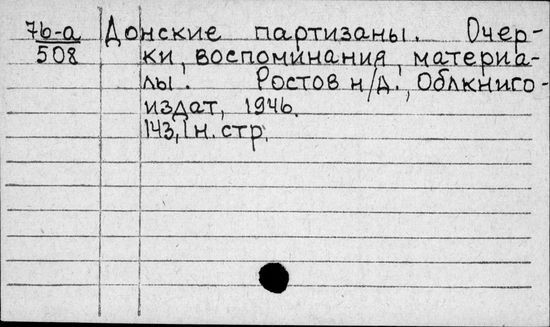 7б-а Донские партизаны. Очер-
508 ки, воспоминания, материа-
лы. Ростов н/д., Облкниго-
издат, 1946.
143, 1 н. стр.